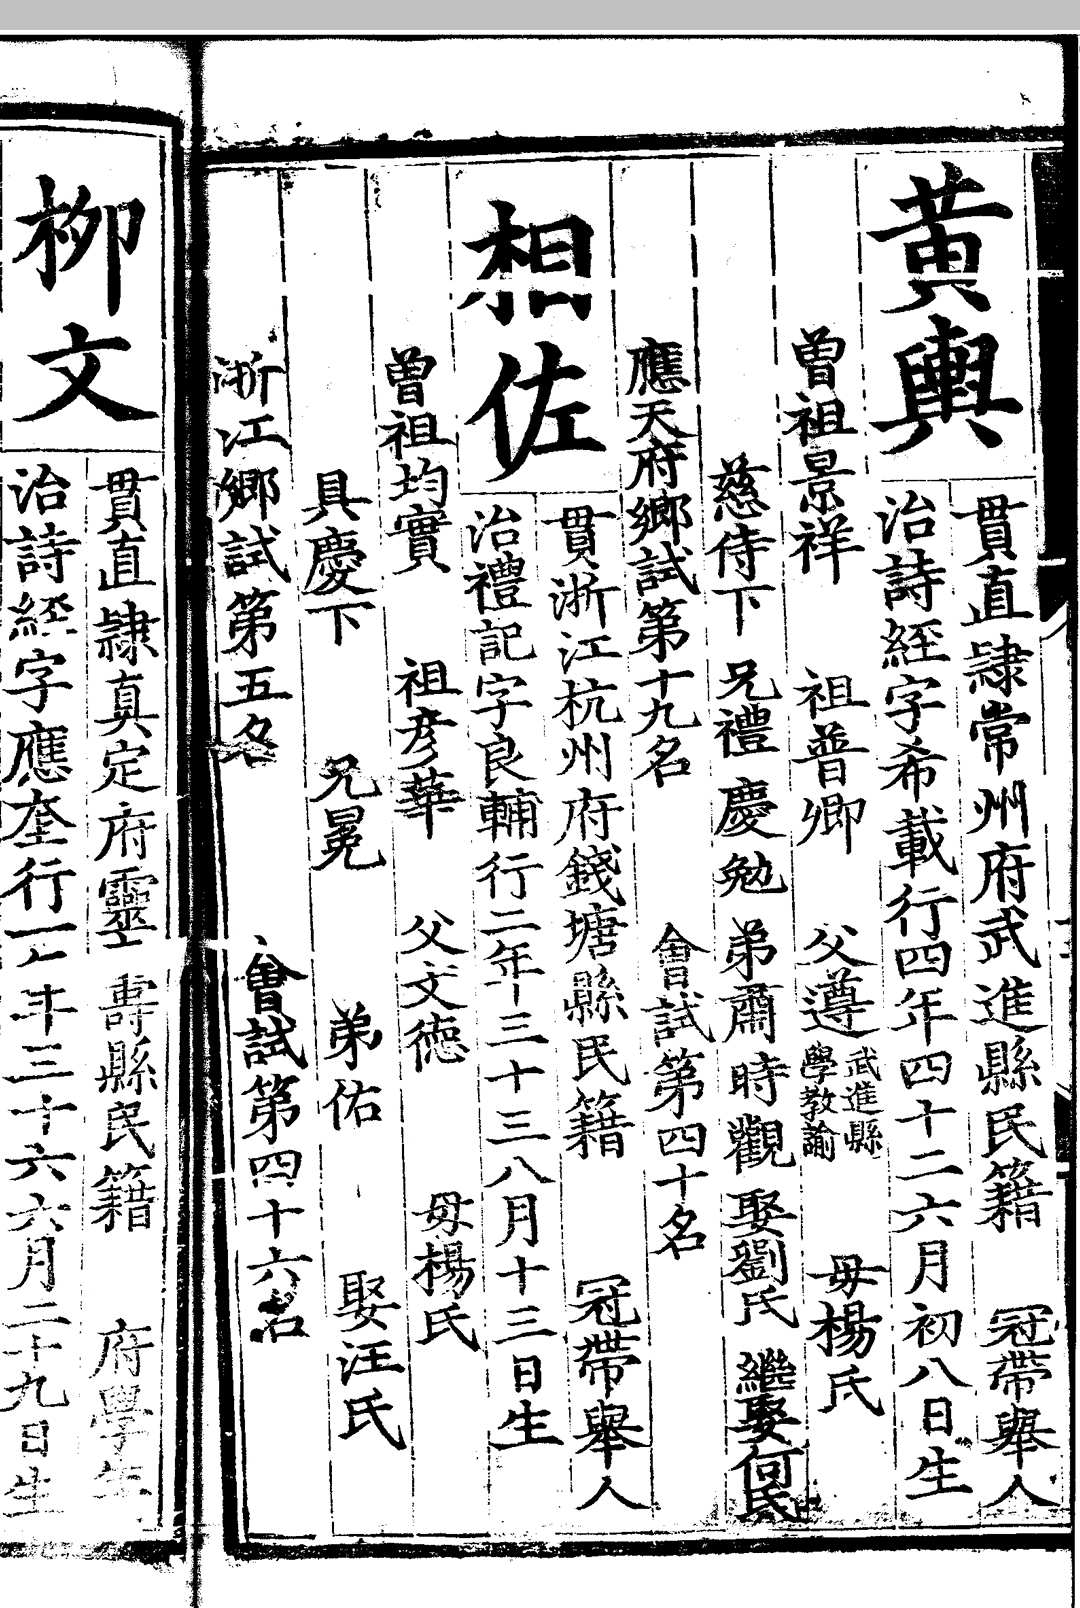 黃輿
貫直隷常州府武進縣民籍 冠帶舉人
治詩經字希載行四年四十二六月初八日生
曾祖景祥 祖普卿 父遵武進縣學教諭 母楊氏
慈侍下 兄禮 慶 勉 弟肅 時 觀 娶劉氏 繼娶何氏
應天府鄉試第十九名 會試第四十名
相佐
貫浙江杭州府錢塘縣民籍 冠帶舉人
治禮記字良輔行二年三十三八月十三日生
曾祖均實 祖彥華 父文德 母楊氏
具慶下 兄冕 弟佑 娶汪氏
浙江鄉試第五名 會試第四十六名
柳文
貫直隷真定府靈壽縣民籍 府學生
治詩經字應奎行一年三十六六月二十九日生